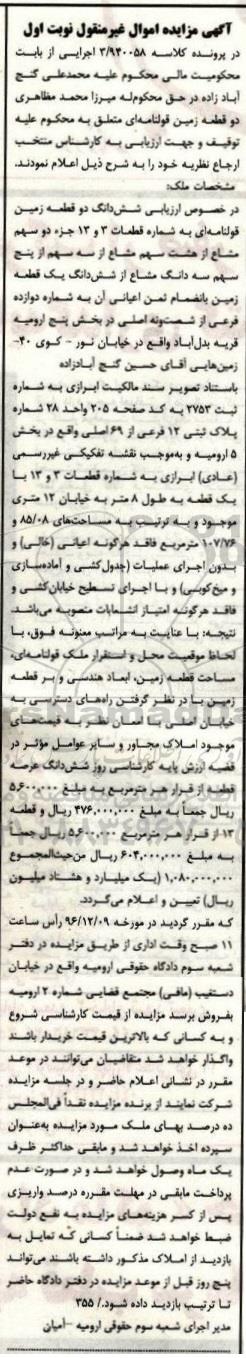 آگهی مزایده اموال غیرمنقول نوبت اول
در پرونده کلاسه ۳/۹۴۰۰۵۸ اجرایی از بابت
محکومیت مالی محکوم علیه محمدعلی گنج
آباد زاده در حق محکوم‌له میرزا محمد مظاهری
دو قطعه زمین قولنامه‌ای متعلق به محکوم علیه
توقیف و جهت ارزیابی به کارشناس منتخب
ارجاع نظریه خود را به شرح ذیل اعلام نمودند.
مشخصات ملک:
در خصوص ارزیابی شش‌دانگ دو قطعه زمین
قولنامه‌ای به شماره قطعات ۳ و ۱۳ جزء دو سهم
مشاع از هشت سهم مشاع از سه سهم از پنج
سهم سه دانگ مشاع از شش‌دانگ یک قطعه
زمین بانضمام ثمن اعیانی آن به شماره دوازده
فرعی از شصت‌ونه اصلی در بخش پنج ارومیه
قریه بدل‌آباد واقع در خیابان نور - کوی ۴۰-
زمین‌هایی آقای حسین گنج آبادزاده
باستناد تصویر سند مالکیت ابرازی به شماره
ثبت ۲۷۵۳ به کد صفحه ۲۰۵ واحد ۲۸ شماره
پلاک ثبتی ۱۲ فرعی از ۶۹ اصلی واقع در بخش
۵ ارومیه و به‌موجب نقشه تفکیکی غیررسمی
(عادی) ابرازی به شماره قطعات ۳ و ۱۳ با
یک قطعه به طول ۸ متر به خیابان ۱۲ متری
موجود و به ترتیب به مساحت‌های ۸۵/۰۸ و
۱۰۷/۷۶ مترمربع فاقد هرگونه اعیانی (خالی) و
بدون اجرای عملیات (جدول‌کشی و آماده‌سازی
و میخ‌کوبی) و با اجرای تسطیح خیابان‌کشی و
فاقد هرگونه امتیاز انشعابات منصوبه می‌باشد.
نتیجه: با عنایت به مراتب معنونه فوق، با
لحاظ موقعیت محل و استقرار ملک قولنامه‌ای،
مساحت قطعه زمین، ابعاد هندسی و بر قطعه
زمین با در نظر گرفتن راه‌های دسترسی به
خیابان اصلی با امعان نظر به قیمت‌های
موجود املاک مجاور و سایر عوامل مؤثر در
قضیه ارزش پایه کارشناسی روز شش‌دانگ عرصه
قطعه ۳ از قرار هر مترمربع به مبلغ ۵,۶۰۰,۰۰۰
ریال جمعاً به مبلغ ۴۷۶,۰۰۰,۰۰۰ ریال و قطعه
۱۳ از قرار هر مترمربع ۵,۶۰۰,۰۰۰ ریال جمعاً
به مبلغ ۶۰۴,۰۰۰,۰۰۰ ریال من‌حیث‌المجموع
۱,۰۸۰,۰۰۰,۰۰۰ (یک میلیارد و هشتاد میلیون
ریال) تعیین و اعلام می‌گردد.
که مقرر گردید در مورخه ۹۶/۱۲/۰۹ رأس ساعت
۱۱ صبح وقت اداری از طریق مزایده در دفتر
شعبه سوم دادگاه حقوقی ارومیه واقع در خیابان
دستغیب (مافی) مجتمع قضایی شماره ۲ ارومیه
بفروش برسد مزایده از قیمت کارشناسی شروع
و به کسانی که بالاترین قیمت خریدار باشند
واگذار خواهد شد متقاضیان می‌توانند در موعد
مقرر در نشانی اعلام حاضر و در جلسه مزایده
شرکت نمایند از برنده مزایده نقداً فی‌المجلس
ده درصد بهای ملک مورد مزایده به‌عنوان
سپرده اخذ خواهد شد و مابقی حداکثر ظرف
یک ماه وصول خواهد شد و در صورت عدم
پرداخت مابقی در مهلت مقرره درصد واریزی
پس از کسر هزینه‌های مزایده به نفع دولت
ضبط خواهد شد ضمناً کسانی که تمایل به
بازدید از املاک مذکور داشته باشند می‌تواند
پنج روز قبل از موعد مزایده در دفتر دادگاه حاضر
تا ترتیب بازدید داده شود./ ۳۵۵
مدیر اجرای شعبه سوم حقوقی ارومیه - آمیان